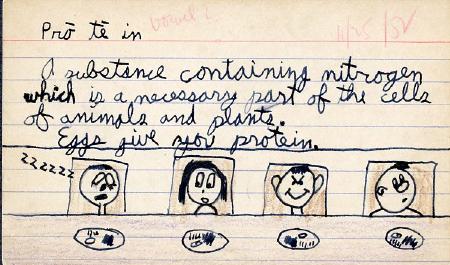 Prō tē in
vowel 2
11/25/52
A substance containing nitrogen
which is a necessary part of the cells
of animals and plants.
Eggs give you protein.
zzzzzzz